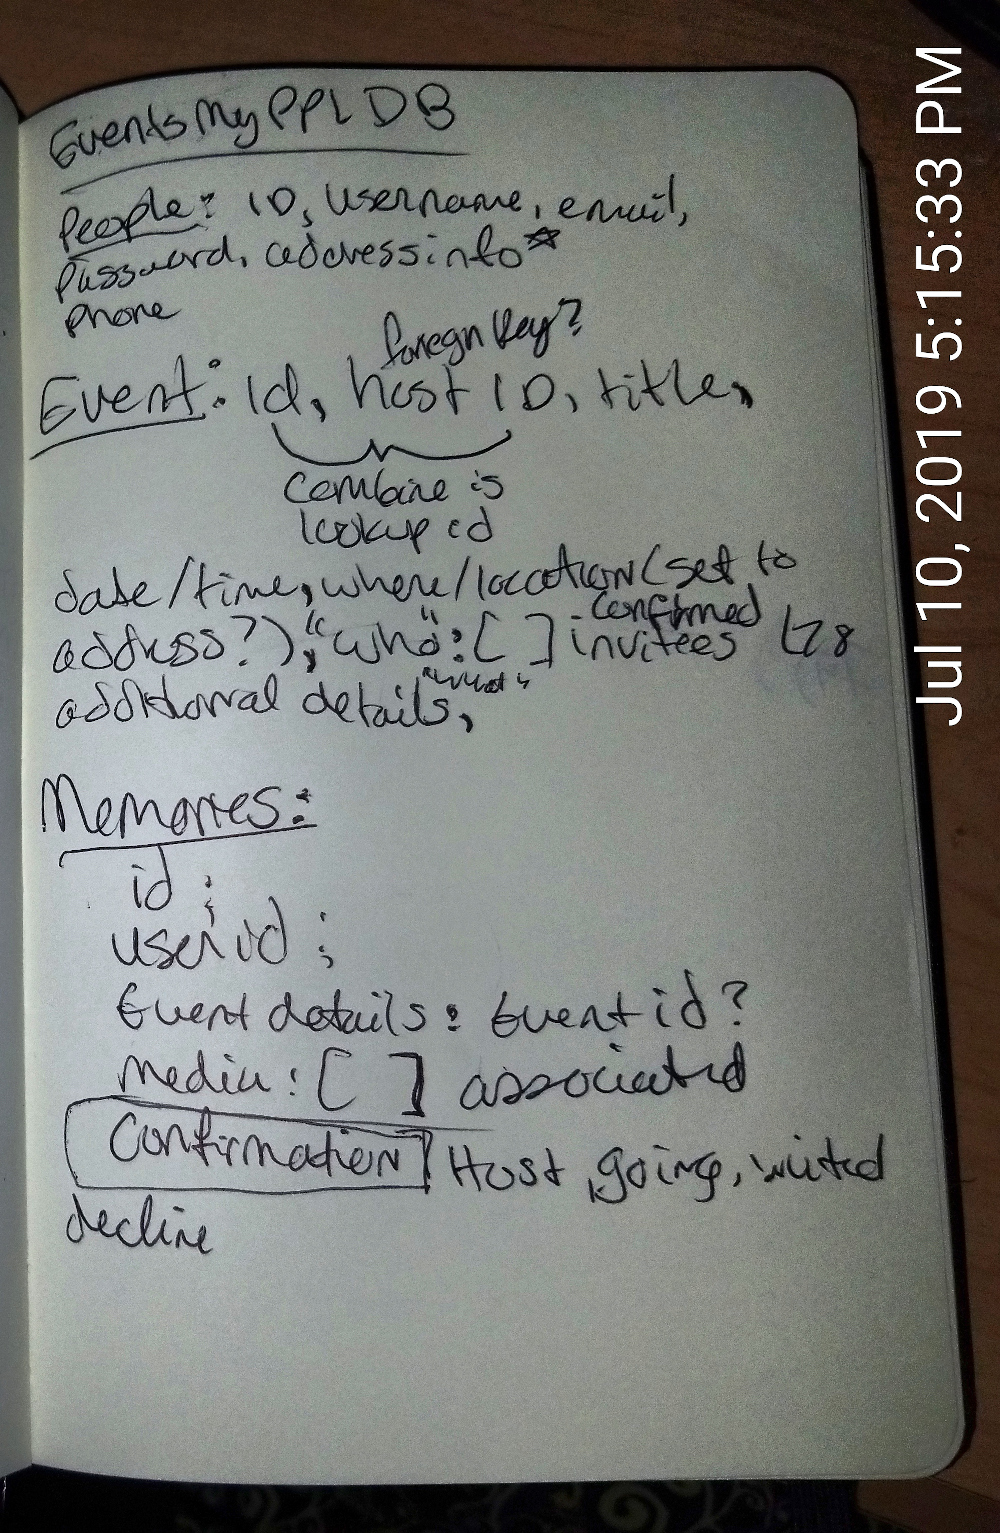 EventsMyPPL DB
People: ID, username, email,
Password, addressinfo*
phone
foregn key?
Event: id, host ID, title,
combine is
lookup id
date/time, where/location (set to
confirmed
address?), "who": [ ] invitees
"what"
additional details,
Memories:
id :
user id ;
Event details: Event id?
Media: [ ] associated
Confirmation Host, going, invited
decline
Jul 10, 2019 5:15:33 PM